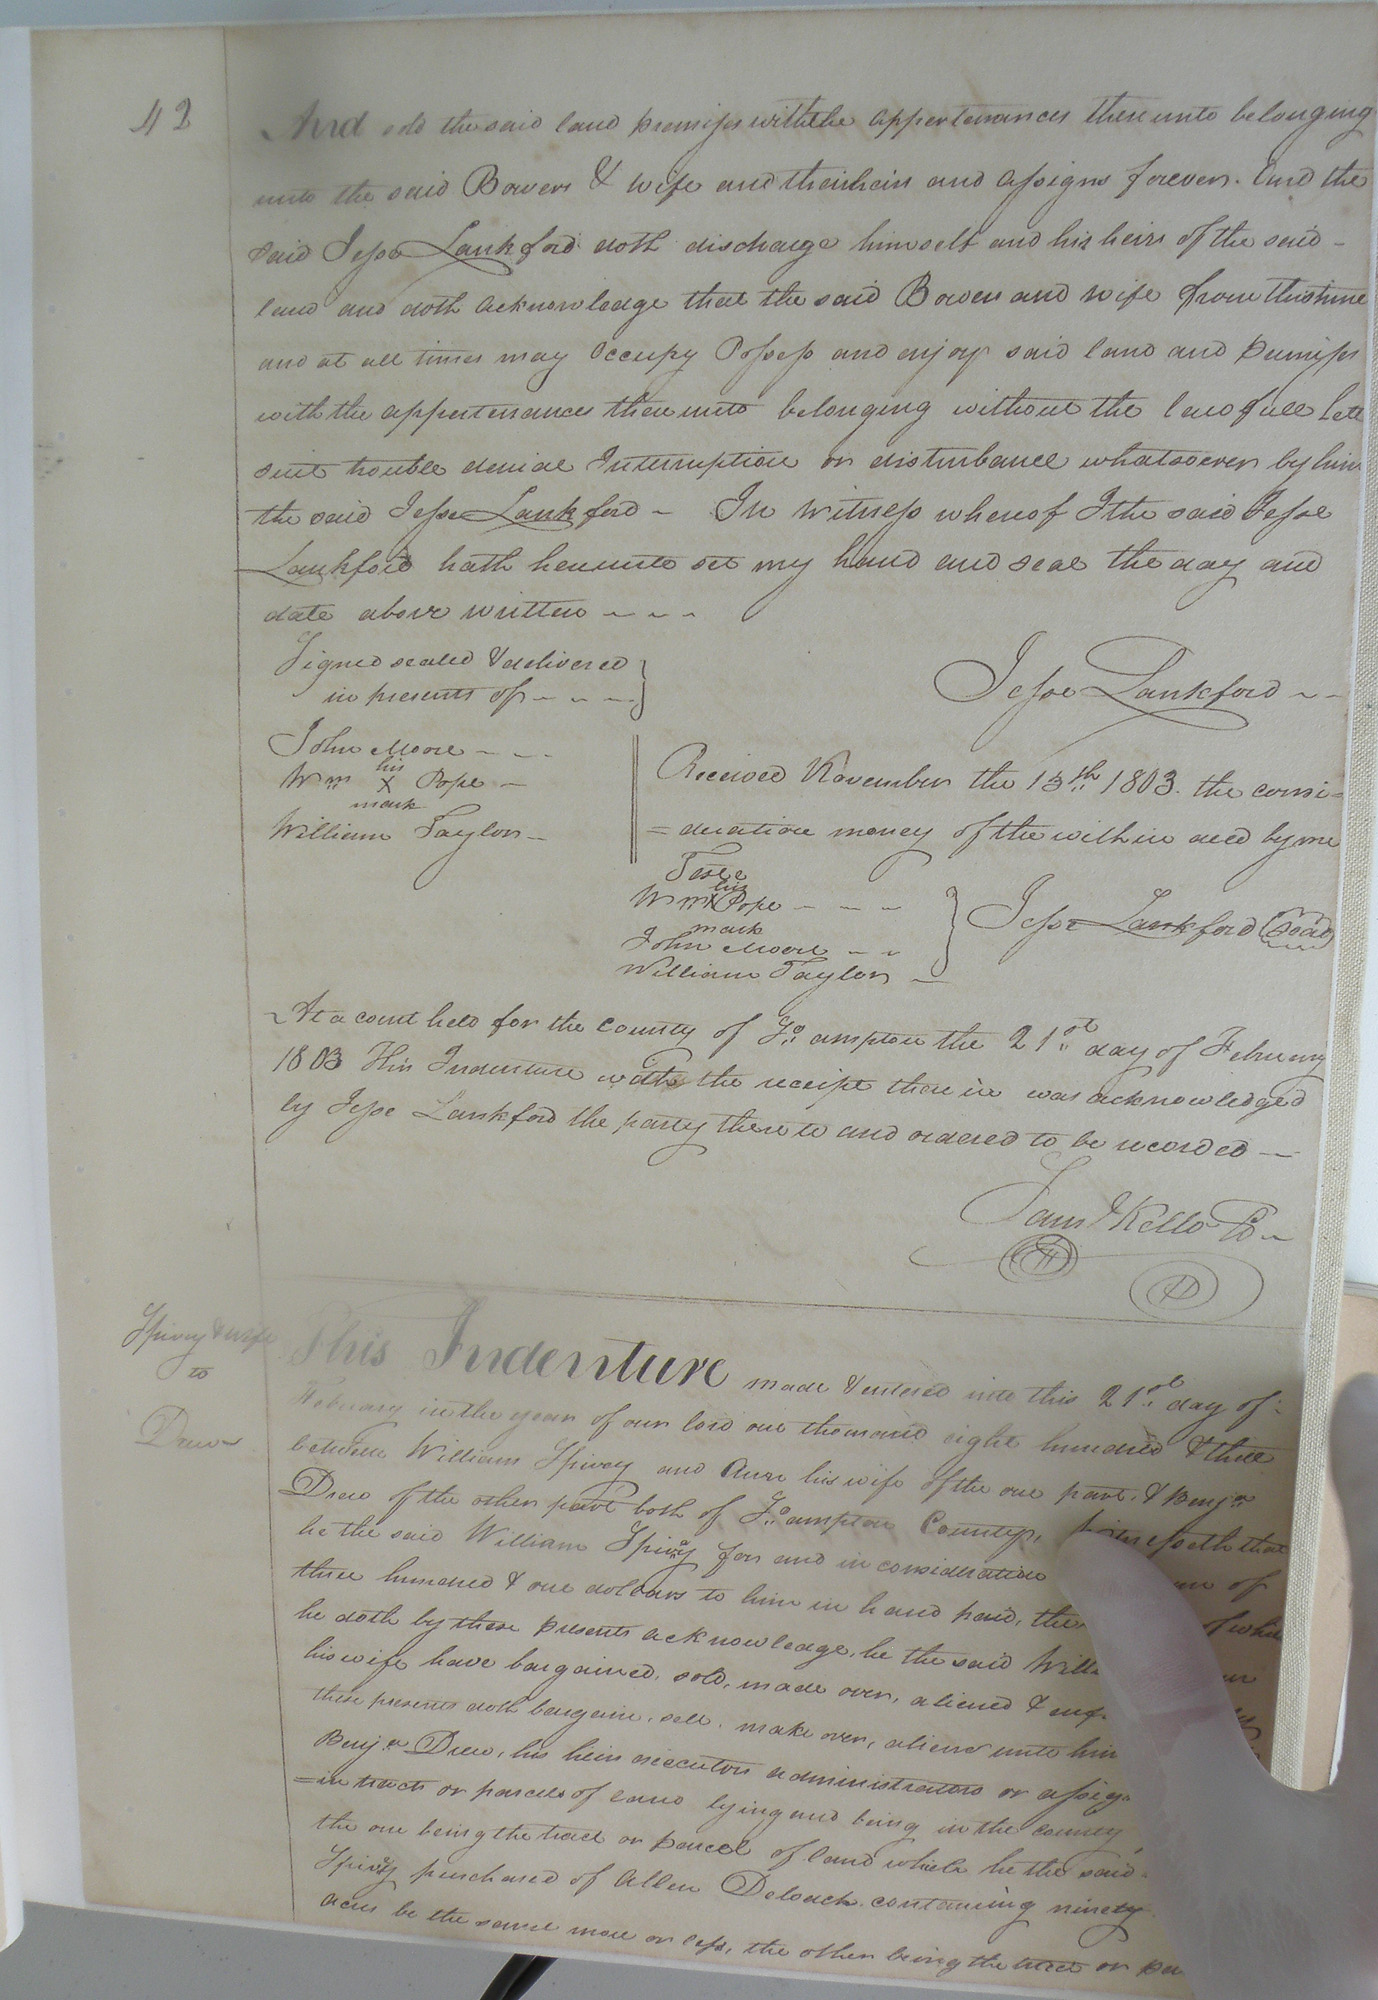 42
And sold the said land premises with the appertenances thereunto belonging
unto the said Bowers & wife and their heirs and assigns forever. And the
said Jesse Lankford doth discharge himself and his heirs of the said -
land and doth acknowledge that the said Bowers and wife from this time
and at all times may Occupy Possess and enjoy said land and premises
with the appertenances thereunto belonging without the lawfull lett
suit trouble denial Interruption or disturbance whatsoever by him
the said Jesse Lankford - In Witness whereof I the said Jesse
Lankford hath hereunto set my hand and seal the day and
date above written - - -
Signed sealed & delivered
in presents of - - - -
Jesse Lankford - -
John Moore - - -
Wm his X mark Pope -
William Taylor -
Received November the 13th 1803. the consi=
=deration money of the within deed by me
Teste
Wm his X mark Pope - - -
John Moore - -
William Taylor -
Jesse Lankford (Seal)
At a court held for the County of So.ampton the 21st day of February
1803 This Indenture with the receipt therein was acknowledged
by Jesse Lankford the party thereto and ordered to be recorded -
Saml Kello
Spivey & wife
to
Drew
This Indenture made & entered into this 21st day of
February in the year of our lord one thousand eight hundred & three
between William Spivey and Ann his wife of the one part, & Benja
Drew of the other part both of So.ampton County, Witnesseth that
he the said William Spivey for and in consideration of
three hundred & one dollars to him in hand paid, the of which
he doth by these presents acknowledge, he the said Will
his wife have bargained, sold, made over, aliened &
these presents doth bargain, sell, make over, aliene unto him
Benja Drew, his heirs executors administrators or assigns
=in tracts or parcels of land lying and being in the county
the one being the tract or parcel of land which he the said
Spivey purchased of Allen Deloach containing ninety
acres be the same more or less, the other being the tract or